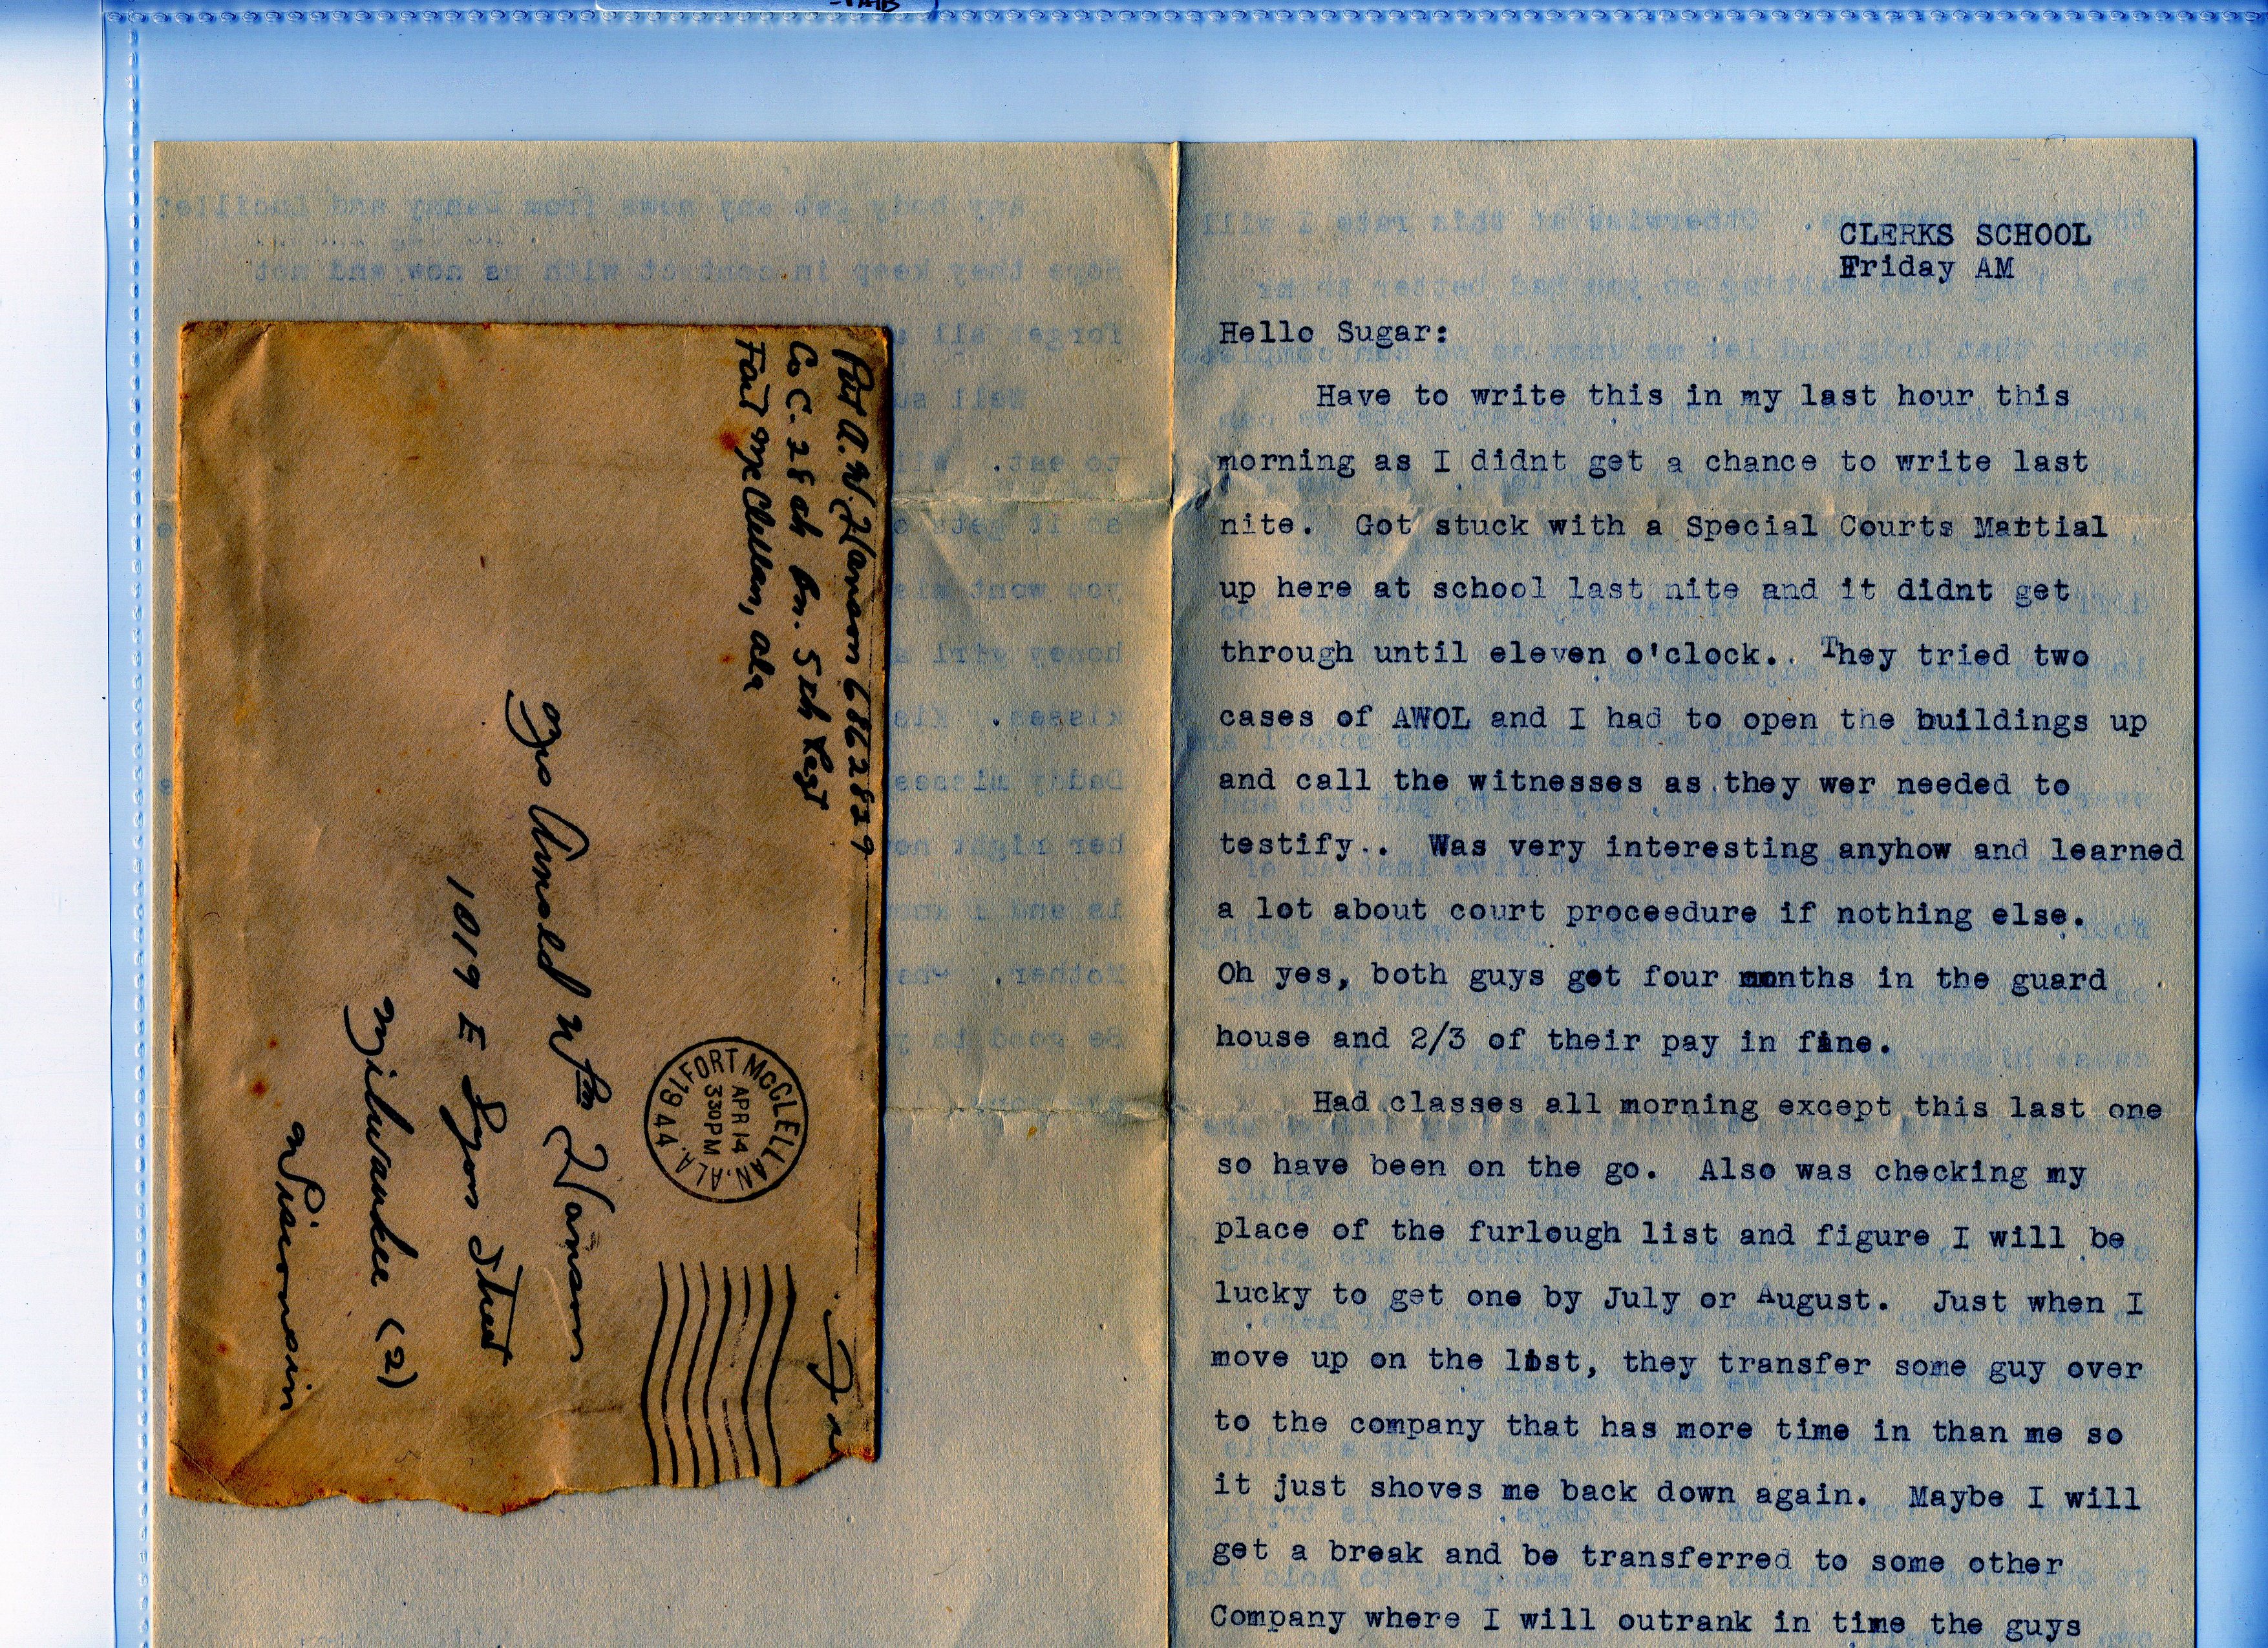 Pvt A. W. Hanson
Co C. 28th Bn. 5th Regt
Fort McClellan, Ala
Free
FORT McCLELLAN, ALA.
APR 14
3 30 PM
1944
Mrs Arnold Wm Hanson
1019 E Lyon Street
Milwaukee (2)
Wisconsin
CLERKS SCHOOL
Friday AM
Hello Sugar:
Have to write this in my last hour this
morning as I didnt get a chance to write last
nite. Got stuck with a Special Courts Martial
up here at school last nite and it didnt get
through until eleven o'clock.. They tried two
cases of AWOL and I had to open the buildings up
and call the witnesses as they wer needed to
testify.. Was very interesting anyhow and learned
a lot about court proceedure if nothing else.
Oh yes, both guys got four months in the guard
house and 2/3 of their pay in fine.
Had classes all morning except this last one
so have been on the go. Also was checking my
place of the furlough list and figure I will be
lucky to get one by July or August. Just when I
move up on the list, they transfer some guy over
to the company that has more time in than me so
it just shoves me back down again. Maybe I will
get a break and be transferred to some other
Company where I will outrank in time the guys